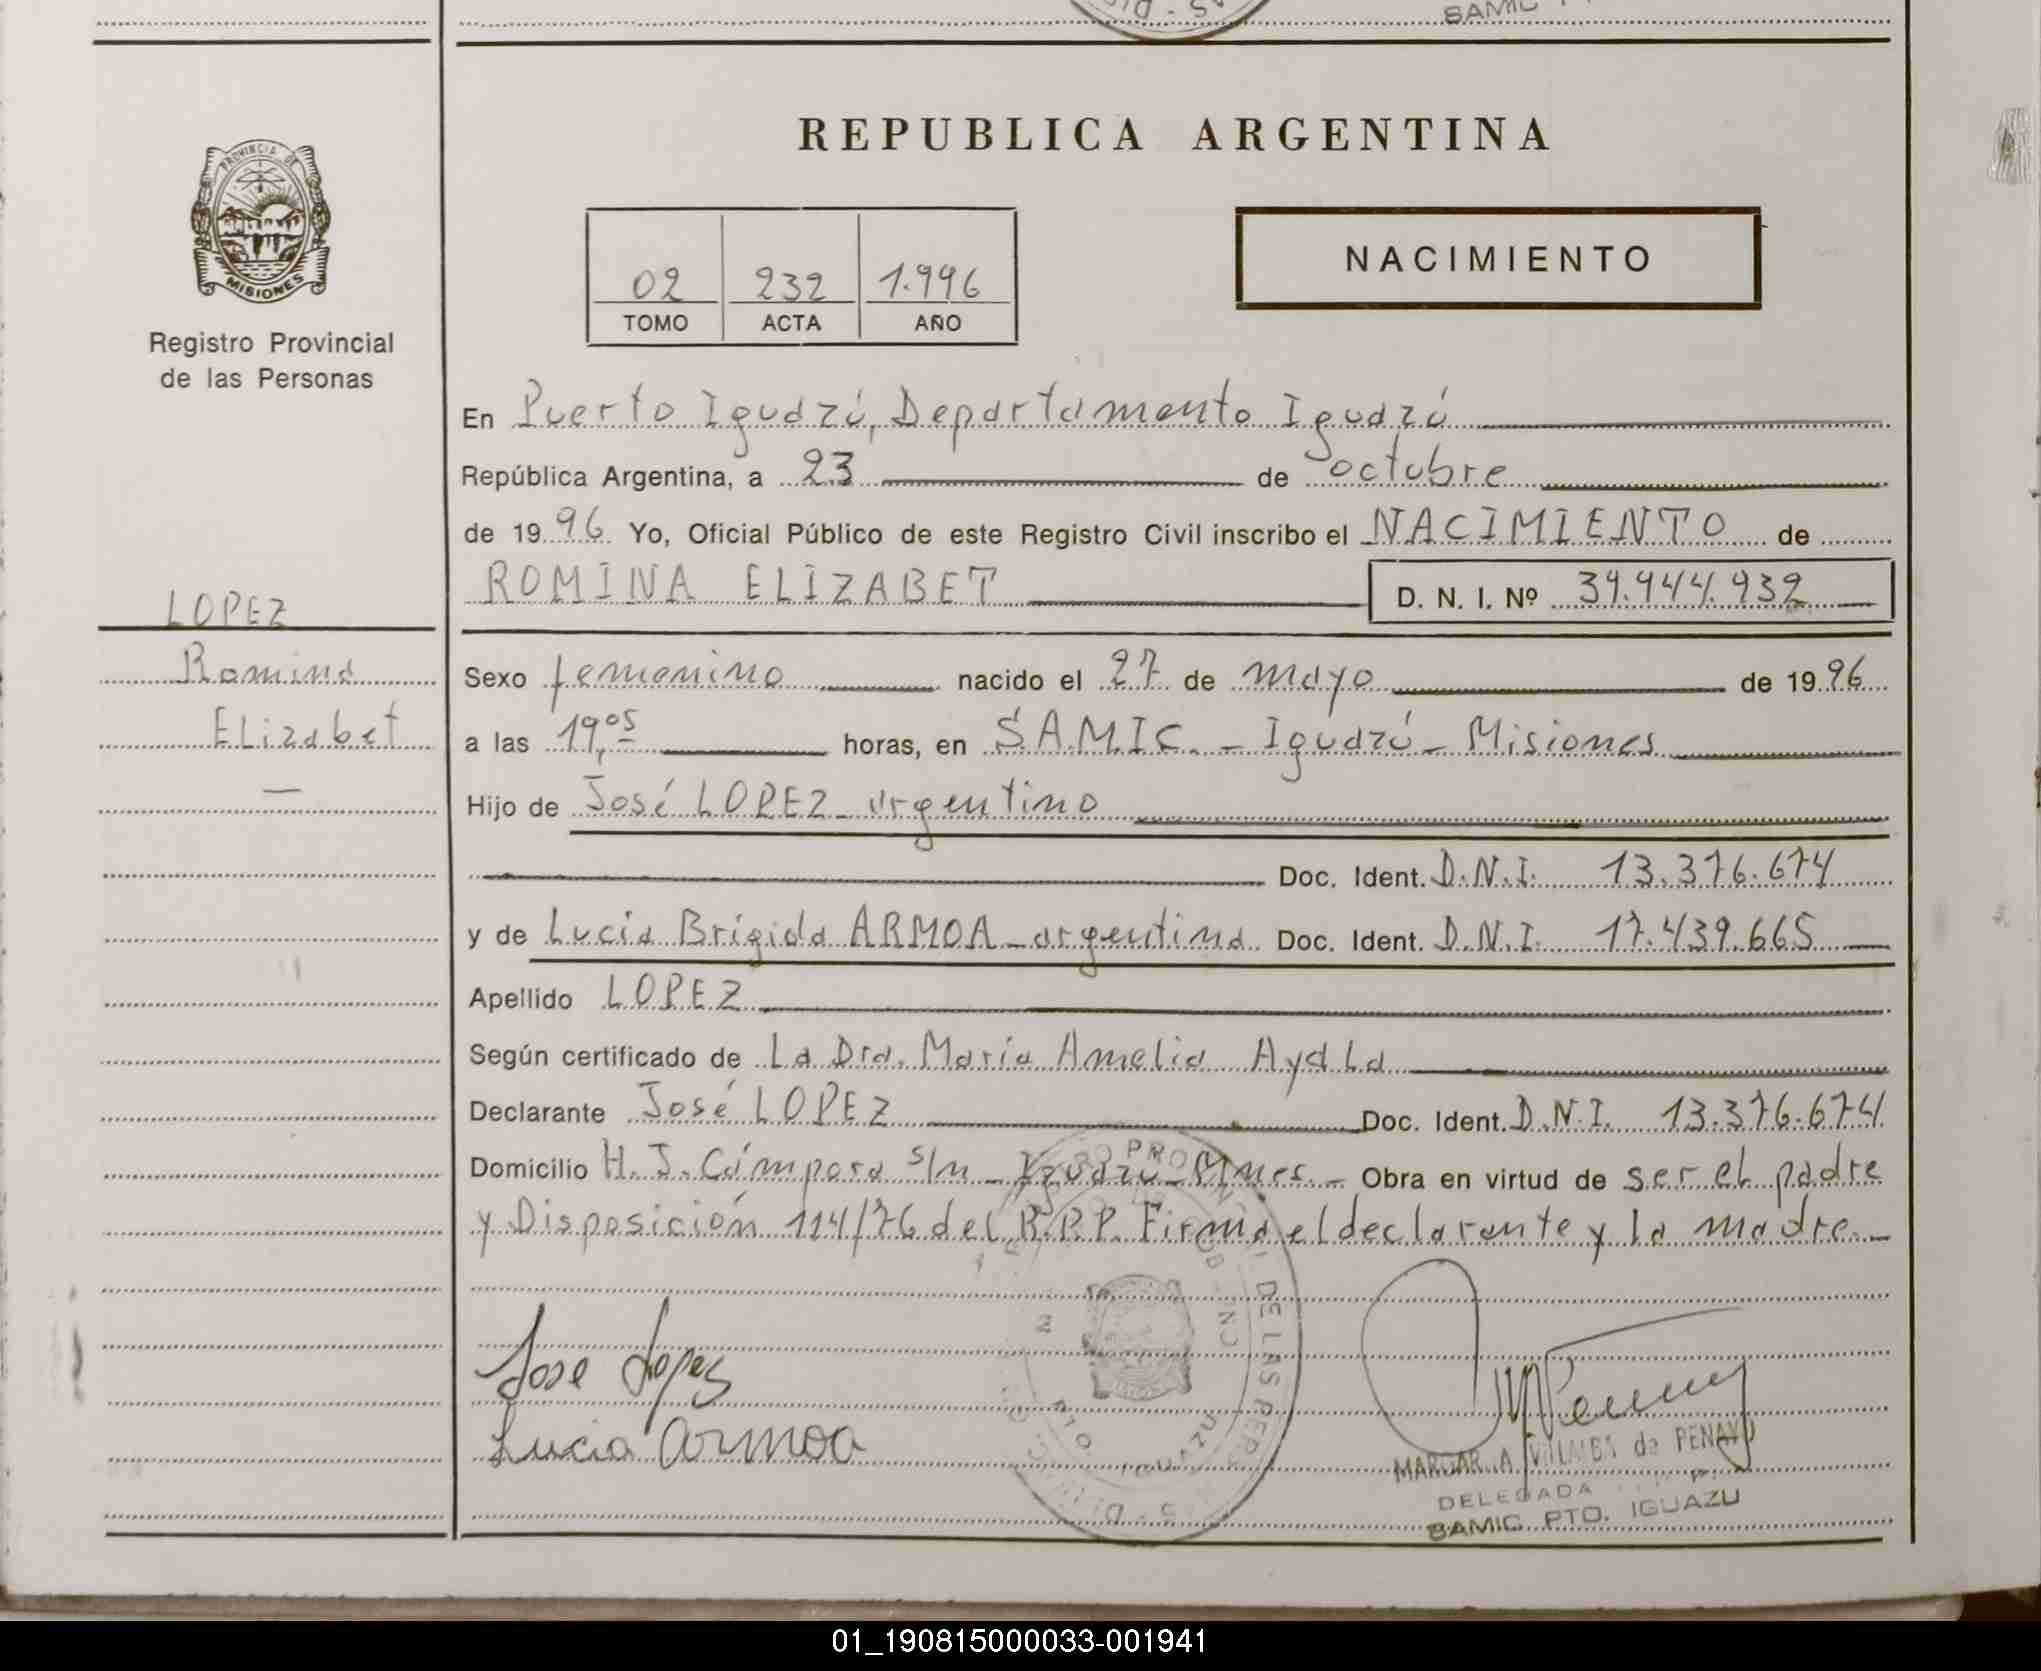 REPUBLICA ARGENTINA
PROVINCIA DE
MISIONES
Registro Provincial
de las Personas
02 232 1.996
TOMO ACTA AÑO
NACIMIENTO
En Puerto Iguazú, Departamento Iguazú
República Argentina, a 23 de octubre
de 19 96 Yo, Oficial Público de este Registro Civil inscribo el NACIMIENTO de
ROMINA ELIZABET D. N. I. Nº 39.944.932
LOPEZ
Romina
Elizabet
Sexo femenino nacido el 27 de mayo de 19 96
a las 19,05 horas, en S.A.M.I.C. - Iguazú - Misiones
Hijo de José LOPEZ - argentino
Doc. Ident. D.N.I. 13.376.674
y de Lucía Brígida ARMOA - argentina Doc. Ident. D.N.I. 17.439.665
Apellido LOPEZ
Según certificado de La Dra. María Amelia Ayala
Declarante José LOPEZ Doc. Ident. D.N.I. 13.376.674
Domicilio H. J. Cámpora s/n - Iguazú - Mnes. - Obra en virtud de ser el padre
y Disposición 114/76 del R.P.P. Firma el declarante y la madre. -
Jose Lopez
Lucia Armoa
DE LAS PERS
PTO. IGUAZU
VILLALBA de PENAYO
DELEGADA
SAMIC PTO. IGUAZU
01_190815000033-001941